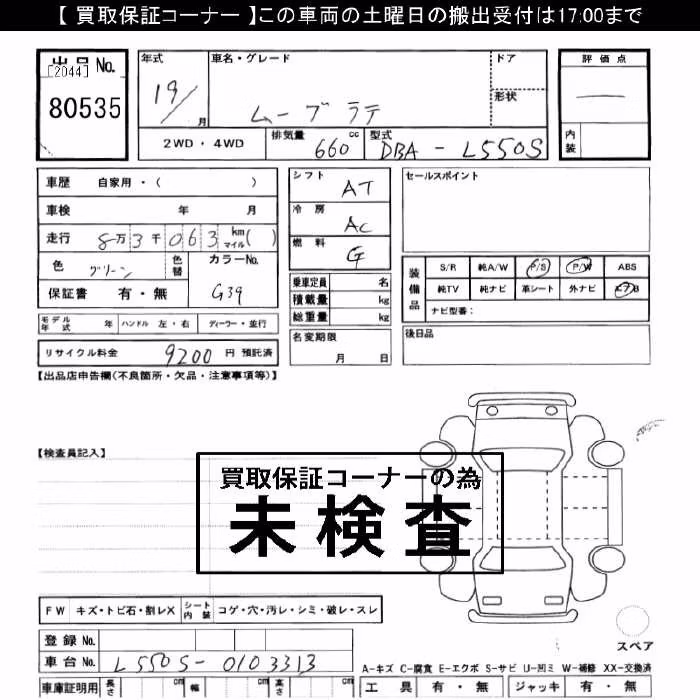 【 買取保証コーナー 】この車両の土曜日の搬出受付は17:00まで
出品 No.
[2044]
80535
年式
19/
月
車名・グレード
ムーブラテ
ドア
形状
評価点
内装
2WD・4WD
排気量 660 cc
型式 DBA - L550S
車歴 自家用・( )
車検 年 月
走行 8万3千063 km マイル( )
色 グリーン
色替
カラーNo. G39
保証書 有・無
シフト AT
冷房 AC
燃料 G
乗車定員 名
積載量 kg
総重量 kg
名変期限
月 日
セールスポイント
装備品
S/R 純A/W P/S P/W ABS
純TV 純ナビ 革シート 外ナビ エアB
ナビ型番:
後日品
モデル年式 年 ハンドル 左・右 ディーラー・並行
リサイクル料金 9200 円 預託済
【出品店申告欄(不良箇所・欠品・注意事項等)】
【検査員記入】
買取保証コーナーの為
未検査
FW キズ・トビ石・割レX シート内装 コゲ・穴・汚レ・シミ・破レ・スレ
登録 No.
車台 No. L550S-0103313
スペア
A-キズ C-腐食 E-エクボ S-サビ U-凹ミ W-補修 XX-交換済
車庫証明用 長さ cm 幅 cm 高さ cm
工具 有・無 ジャッキ 有・無